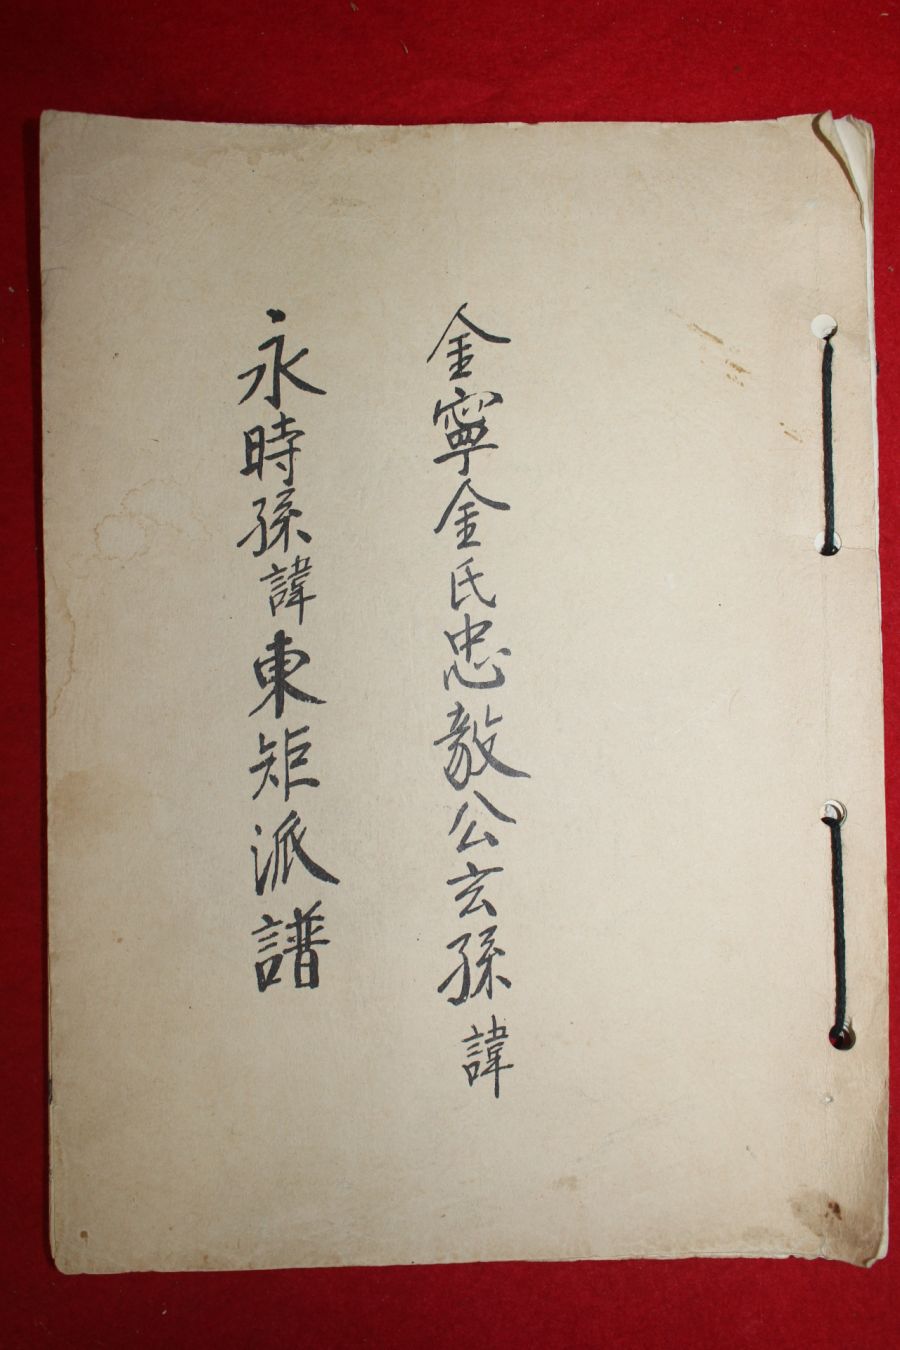 金寧金氏忠毅公玄孫諱
永時孫諱東矩派譜